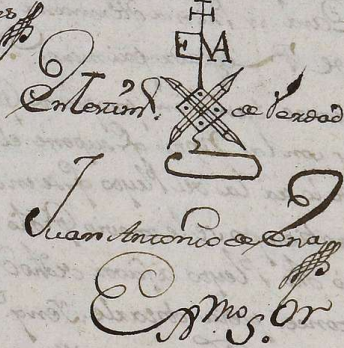 E A
En testim.º de Verdad
Juan Antonio de Ena
Ex.mo S.or